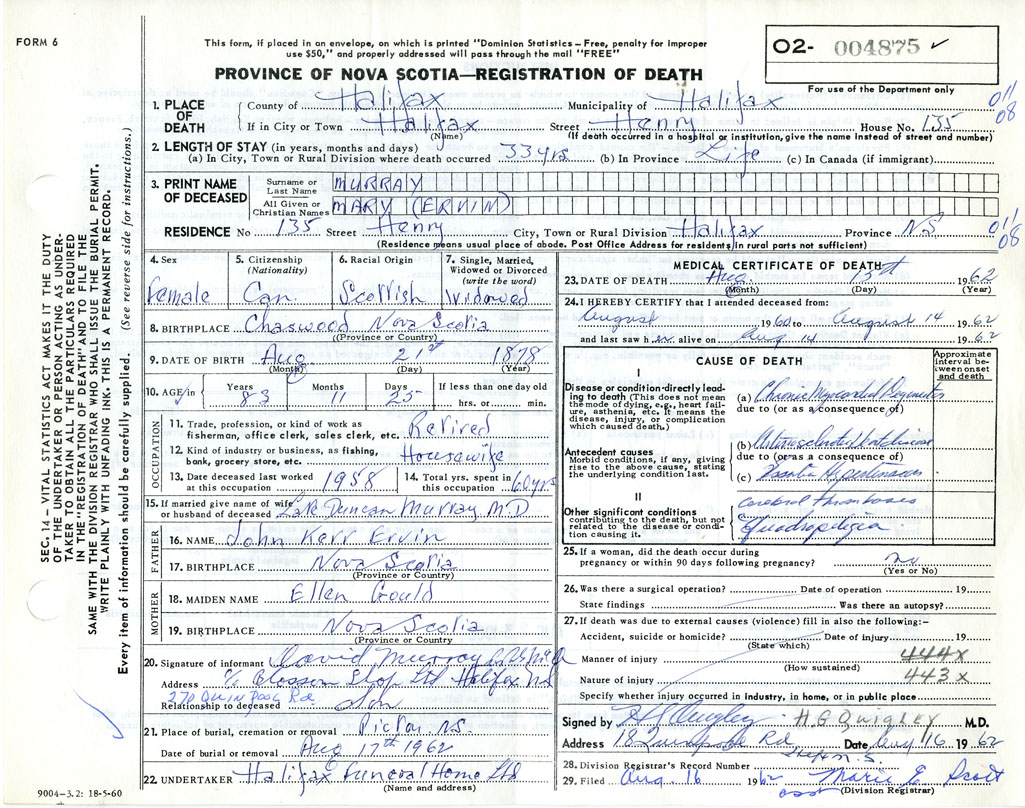 FORM 6
This form, if placed in an envelope, on which is printed "Dominion Statistics – Free, penalty for improper
use $50," and properly addressed will pass through the mail "FREE"
O2- 004875 ✓
For use of the Department only
PROVINCE OF NOVA SCOTIA—REGISTRATION OF DEATH
011/08
1. PLACE OF DEATH
County of Halifax Municipality of Halifax
If in City or Town Halifax Street Henry House No. 135
(Name) (If death occurred in a hospital or institution, give the name instead of street and number)
2. LENGTH OF STAY (in years, months and days)
(a) In City, Town or Rural Division where death occurred 33 yrs (b) In Province Life (c) In Canada (if immigrant)
3. PRINT NAME OF DECEASED
Surname or Last Name MURRAY
All Given or Christian Names MARY (ERVIN)
RESIDENCE No 135 Street Henry City, Town or Rural Division Halifax Province N.S
011/08
(Residence means usual place of abode. Post Office Address for residents in rural parts not sufficient)
4. Sex Female
5. Citizenship (Nationality) Can.
6. Racial Origin Scottish
7. Single, Married, Widowed or Divorced (write the word) Widowed
8. BIRTHPLACE Chaswood Nova Scotia
(Province or Country)
9. DATE OF BIRTH Aug 21st 1878
(Month) (Day) (Year)
10. AGE in Years 83 Months 11 Days 25 If less than one day old hrs. or min.
OCCUPATION
11. Trade, profession, or kind of work as fisherman, office clerk, sales clerk, etc. Retired
12. Kind of industry or business, as fishing, bank, grocery store, etc. Housewife
13. Date deceased last worked at this occupation 1958
14. Total yrs. spent in this occupation 60 yrs
15. If married give name of wife or husband of deceased Late Duncan Murray M.D
FATHER
16. NAME John Kerr Ervin
17. BIRTHPLACE Nova Scotia
(Province or Country)
MOTHER
18. MAIDEN NAME Ellen Gould
19. BIRTHPLACE Nova Scotia
(Province or Country)
20. Signature of informant David Murray
Address c/o Blossom Shop Ltd Halifax NS
270 Quinpool Rd.
Relationship to deceased Son
21. Place of burial, cremation or removal Pictou N.S.
Date of burial or removal Aug 17th 1962
22. UNDERTAKER Halifax Funeral Home Ltd
(Name and address)
9004-3.2: 18-5-60
MEDICAL CERTIFICATE OF DEATH
23. DATE OF DEATH Aug. 15th 1962
(Month) (Day) (Year)
24. I HEREBY CERTIFY that I attended deceased from:
August 1960 to August 14 1962
and last saw her alive on Aug 14 1962
CAUSE OF DEATH
Approximate interval between onset and death
I
Disease or condition directly leading to death (This does not mean the mode of dying, e.g., heart failure, asthenia, etc. It means the disease, injury, or complication which caused death.)
(a) Chronic Myocardial Degeneration
due to (or as a consequence of)
Antecedent causes
Morbid conditions, if any, giving rise to the above cause, stating the underlying condition last.
(b)
due to (or as a consequence of)
(c) Hypertension
II
Other significant conditions contributing to the death, but not related to the disease or condition causing it.
Cerebral Thrombosis
Quadriplegia
25. If a woman, did the death occur during
pregnancy or within 90 days following pregnancy? no
(Yes or No)
26. Was there a surgical operation? Date of operation 19
State findings Was there an autopsy?
27. If death was due to external causes (violence) fill in also the following:–
Accident, suicide or homicide? Date of injury 19
(State which)
Manner of injury 444x
(How sustained)
Nature of injury 443x
Specify whether injury occurred in industry, in home, or in public place
Signed by H G Quigley H. G QUIGLEY M.D.
Address 18 Rd Date Aug 16 1962
28. Division Registrar's Record Number
29. Filed Aug. 16 1962 Marie E Scott
(Division Registrar)
SEC. 14 – VITAL STATISTICS ACT MAKES IT THE DUTY
OF THE UNDERTAKER OR PERSON ACTING AS UNDER-
TAKER TO OBTAIN ALL THE PARTICULARS REQUIRED
IN THE "REGISTRATION OF DEATH" AND TO FILE THE
SAME WITH THE DIVISION REGISTRAR WHO SHALL ISSUE THE BURIAL PERMIT.
WRITE PLAINLY WITH UNFADING INK. THIS IS A PERMANENT RECORD.
Every item of information should be carefully supplied. (See reverse side for instructions.)